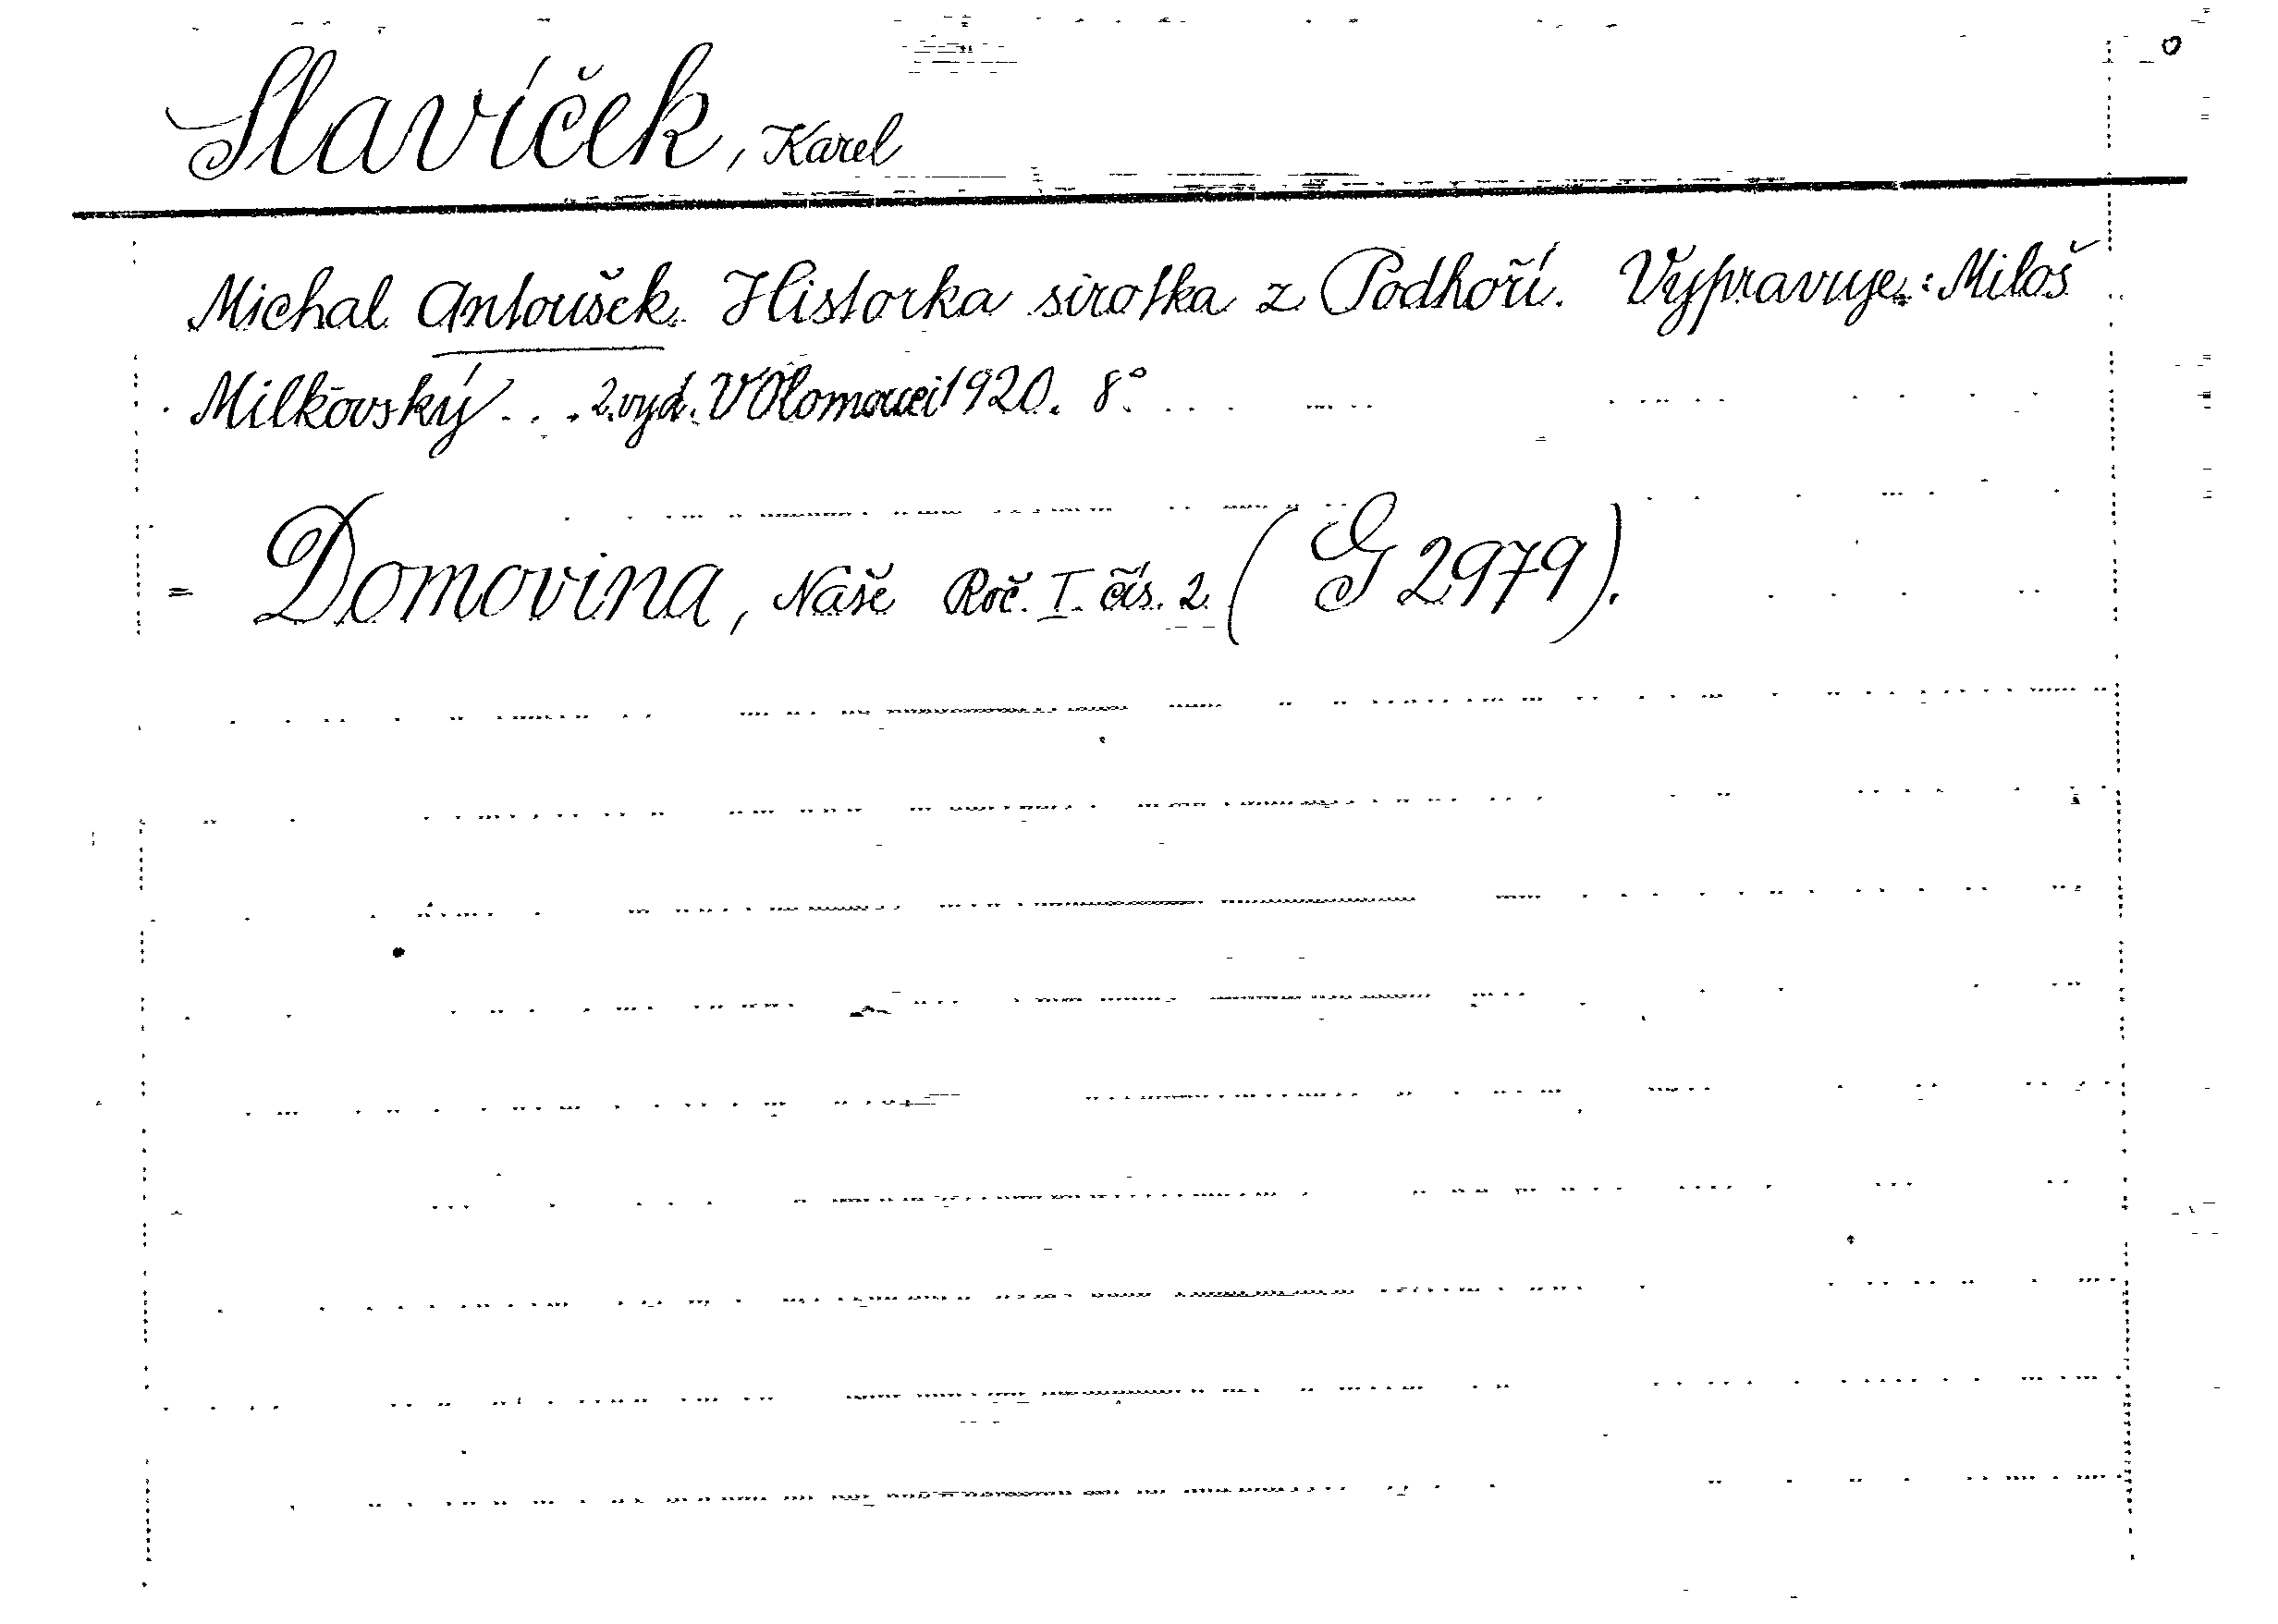 Slavíček, Karel
Michal Antoušek. Historka sirotka z Podhoří. Vypravuje: Miloš
Milkovský ... 2. vyd. V Olomouci 1920. 8°.
= Domovina, Naše Roč. I. čís. 2 (G 2979).